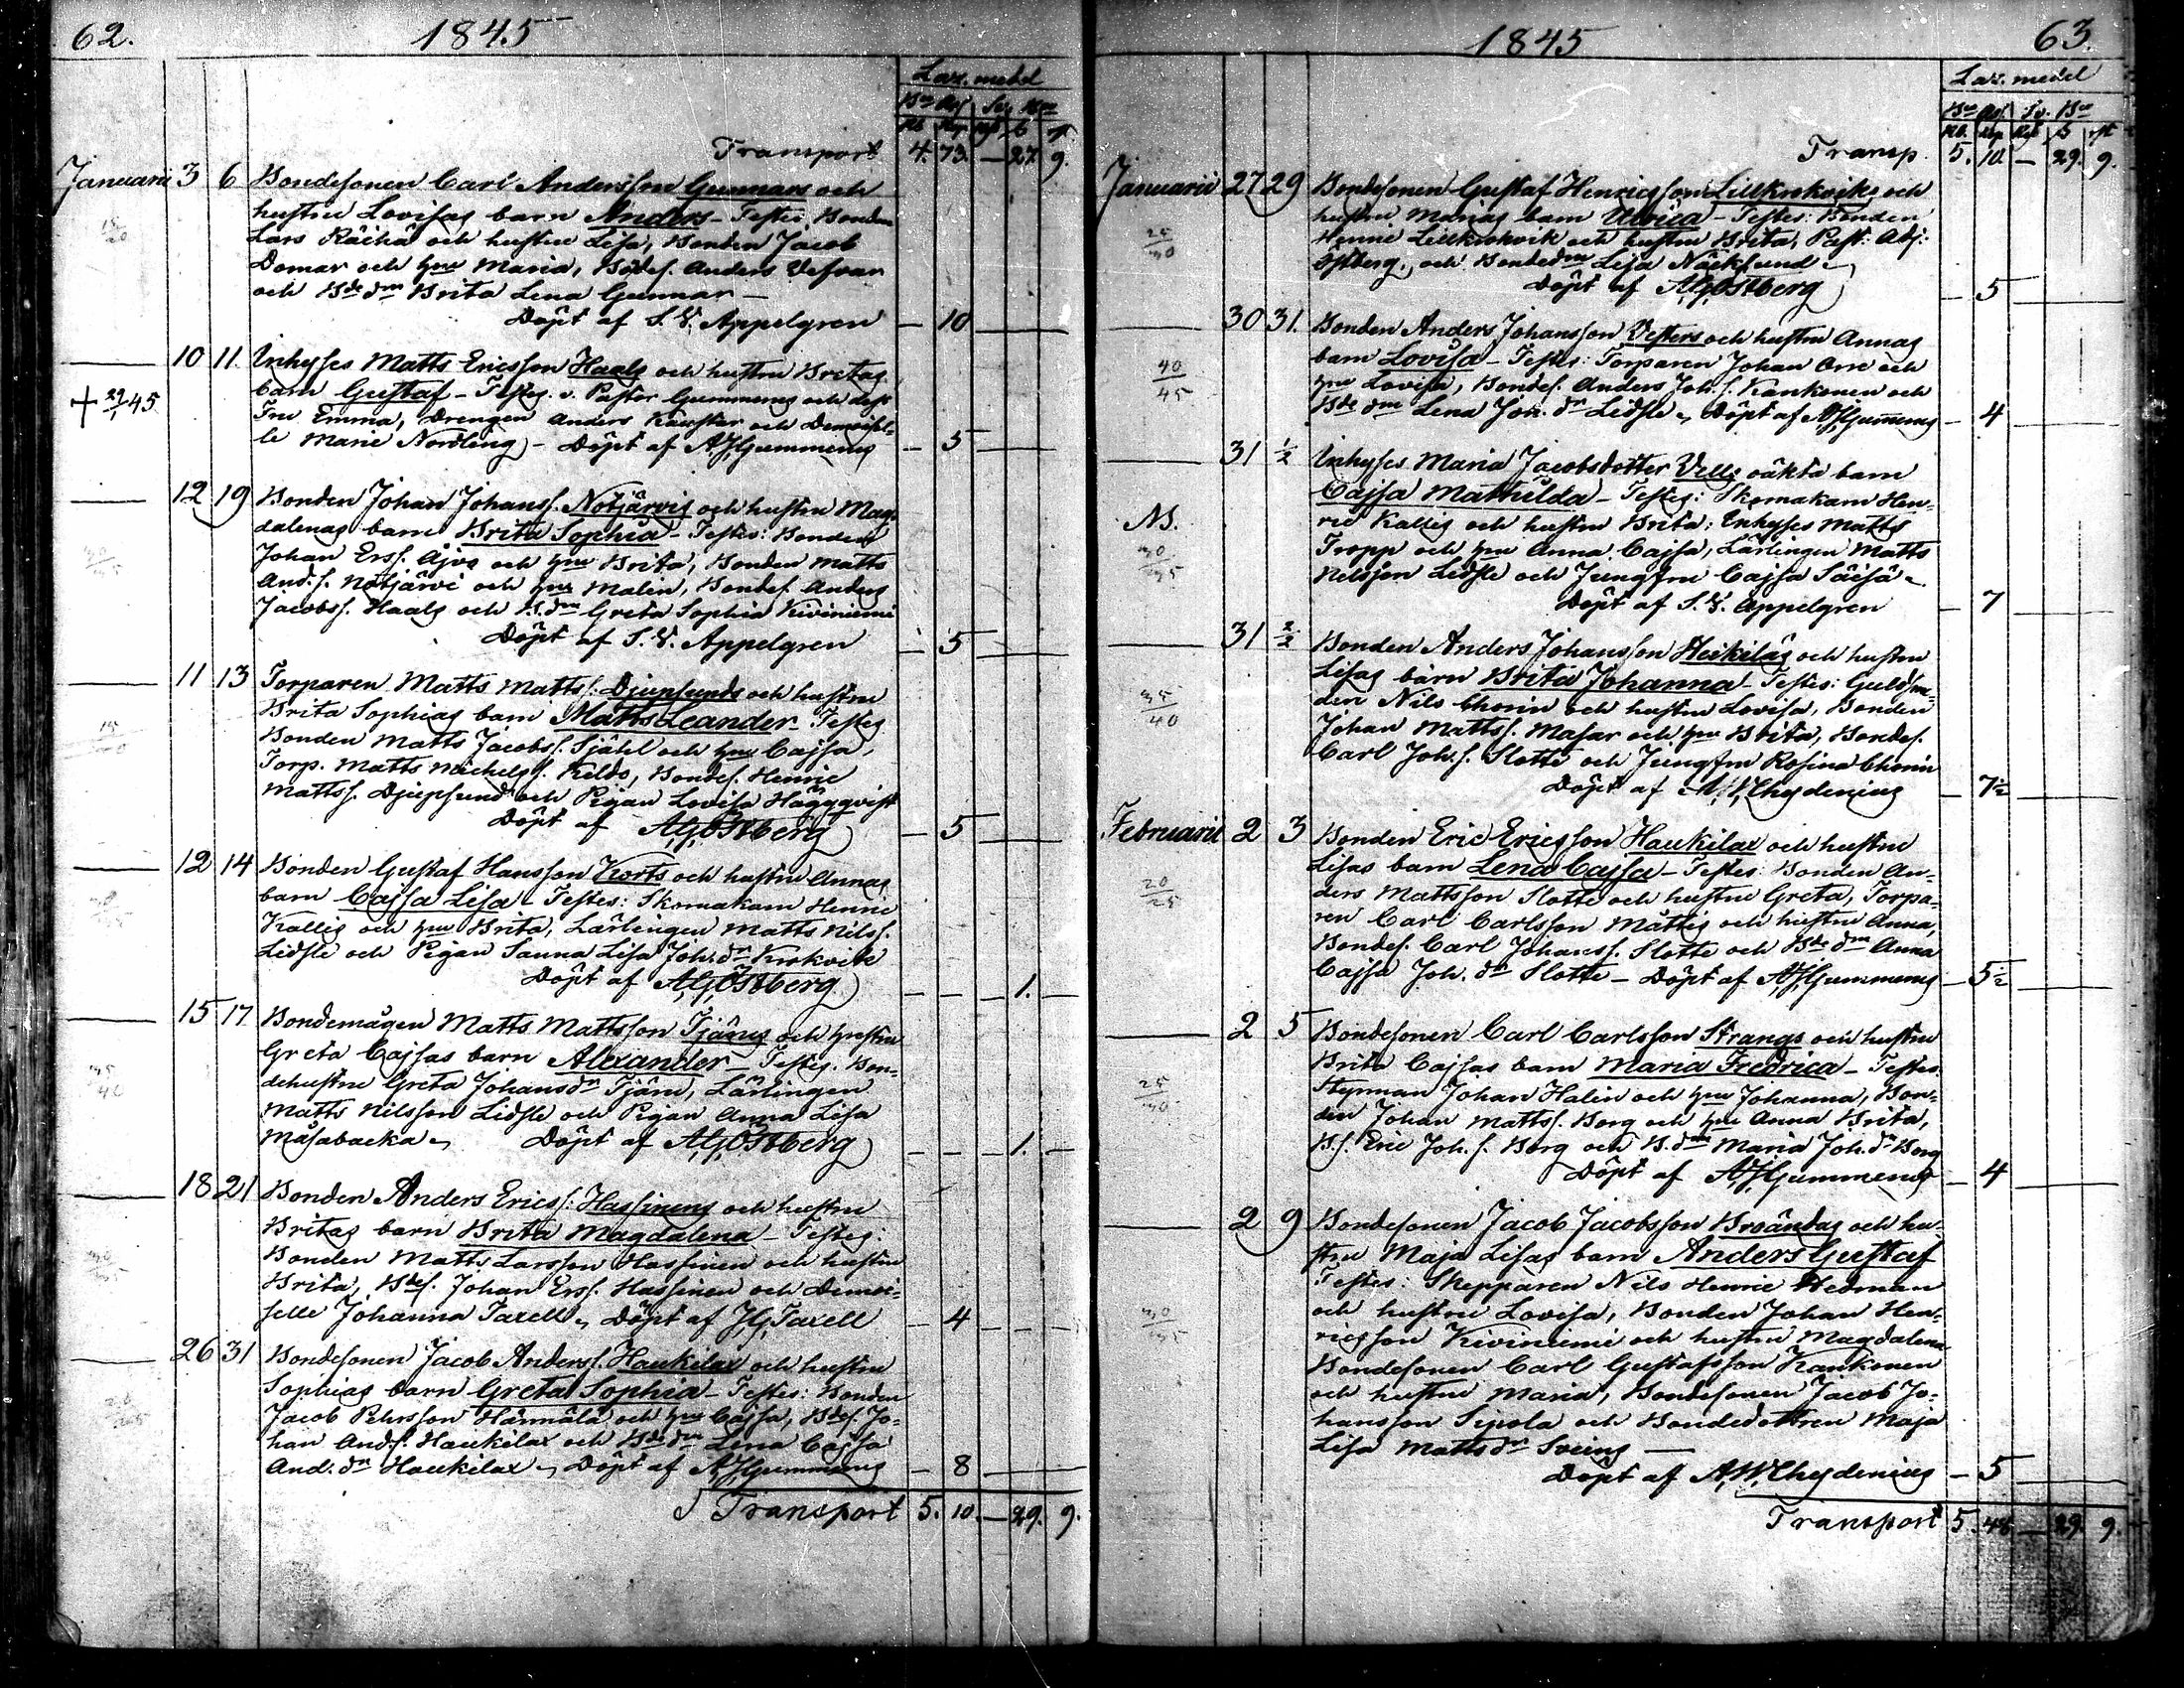 62. 1845
Laz. medel
Bco Ass Sv. Bco
Rb. Kop Rd ß rst
Transport 4. 73. — 27. 9.
Januarii 3 6 Bondesonen Carl Andersson Gunnars och
hustru Lovisas barn Anders – Testes: Bonden
15/20
Lars Räihä och hustru Lisa, Bonden Jacob
Domar och hru Maria, Bdes. Anders
och Bde dn Brita Lena Gunnar —
Döpt af S. V. Appelgren — 10 —
10 11. Inhyses Matts Ericsson Haals och hustru Bretas
barn Gustaf – Testes: Pastor Gummerus och dess
+ 29/1 45
Fru Emma, Drengen Anders och Demoisel-
le Marie Nordling – Döpt af A J Gummerus — 5 —
12 19 Bonden Johan Johanss. Notjärvis och hustru Mag-
dalenas barn Brita Sophia – Testes: Bonden
30/35
Johan Erss. Ajos och hru Brita, Bonden Matts
And.s. Notjärvi och hru Malin, Bondes. Anders
Jacobss. Haals och B.dn Greta Sophia Kiviniemi
Döpt af S. V. Appelgren — 5 —
11 13 Torparen Matts Mattss. Djupsunds och hustru
Brita Sophias barn Matts Leander – Testes
15
Bonden Matts Jacobss. Sjähl och hru Cajsa,
Torp. Matts Michelss. Keldo, Bondes. Henric
Mattss. Djupsund och Pigan Lovisa Häggqvist
Döpt af A G Östberg — 5 —
12 14 Bonden Gustaf Hansson Korts och hustru Annas
barn Cajsa Lisa – Testes: Skomakarn Henric
Kallis och hru Brita, Lärlingen Matts Nilss.
Lidsle och Pigan Sanna Lisa Joh. dr Krokvik
Döpt af A G Östberg — — — 1. —
15 17 Bondemågen Matts Mattsson Tjärus och hustru
Greta Cajsas barn Alexander – Testes. Bon-
35/40
dehustru Greta Johansdr Tjäru, Lärlingen
Matts Nilsson Lidsle och Pigan Anna Lisa
Måsabacka – Döpt af A G Östberg — — — 1. —
18 21 Bonden Anders Ericss. Hassinens och hustru
Britas barn Brita Magdalena – Testes:
Bonden Matts Larsson Hassinen och hustru
30/35
Brita, Bdes. Johan Erss. Hassinen och Demoi-
selle Johanna Taxell – Döpt af J G Taxell — 4 —
26 31 Bondesonen Jacob Anderss. Haukilax och hustru
Sophias barn Greta Sophia – Testes: Bonden
Jacob Pehrsson Hännälä och hru Cajsa, Bdes. Jo-
han And.s. Haukilax och Bde dn Lena Cajsa
And. dr Haukilax – Döpt af A J Gummerus — 8 —
Transport 5. 10. — 29. 9.
1845 63.
Laz. medel
Bco Ass. Sv. Bco
Rb. Kop Rd ß rst
Transp. 5. 10. — 29. 9.
Januarii 27 29 Bondesonen Gustaf Henricsson Lillkrokviks och
hustru Marias barn Ulrica – Testes: Bonden
25/30
Henric Lillkrokvik och hustru Brita, Past: Adj:
Östberg, och Bondedn Lisa Näcksund –
Döpt af A G Östberg — 5 —
30 31. Bonden Anders Johansson Vesters och hustru Annas
barn Lovisa – Testes: Torparen Johan Orre och
40/45
hru Lovisa, Bondes. Anders Joh.s. Kankonen och
Bde dn Lena Joh. dr Lidsle – Döpt af A J Gummerus — 4 —
31 1/2 Inhyses Maria Jacobsdotter Vells oäkta barn
Cajsa Mathilda – Testes: Skomakarn Hen-
N.
ric Kallis och hustru Brita, Inhyses Matts
30/35
Tropp och hru Anna Cajsa, Lärlingen Matts
Nilsson Lidsle och Jungfru Cajsa Säisä –
Döpt af S. V. Appelgren — 7 —
31 2/2 Bonden Anders Johansson Heikiläs och hustru
Lisas barn Brita Johanna – Testes: Guldsme-
35/40
den Nils Chorin och hustru Lovisa, Bonden
Johan Mattss. Masar och hru Brita, Bondes.
Carl Joh.s. Slotte och Jungfru Rosina Chorin
Döpt af A W Chydenius — 7½ —
Februarii 2 3 Bonden Eric Ericsson Haukilax och hustru
Lisas barn Lena Cajsa – Testes: Bonden An-
20/25
ders Mattsson Slotte och hustru Greta, Torpa-
ren Carl Carlsson Mattis och hustru Anna,
Bondes. Carl Johanss. Slotte och Bde dn Anna
Cajsa Joh. dr Slotte – Döpt af A J Gummerus — 5½ —
2 5 Bondesonen Carl Carlsson Strangs och hustru
Brita Cajsas barn Maria Fredrica – Testes
25/30
Styrman Johan Halin och hru Johanna, Bon-
den Johan Mattss. Borg och hru Anna Brita,
B.s. Eric Joh.s. Borg och B.dn Maria Joh. dr Borg
Döpt af A J Gummerus — 4 —
2 9 Bondesonen Jacob Jacobsson Broändas och hu-
stru Maja Lisas barn Anders Gustaf
Testes: Skepparen Nils Henric Hedman
30/35
och hustru Lovisa, Bonden Johan Hen-
ricsson Kiviniemi och hustru Magdalena
Bondesonen Carl Gustafsson Kankonen
och hustru Maria, Bondesonen Jacob Jo-
hansson Sipola och Bondedottren Maja
Lisa Matts dr Sveins —
Döpt af A W Chydenius — 5 —
Transport 5. 48 — 29. 9.